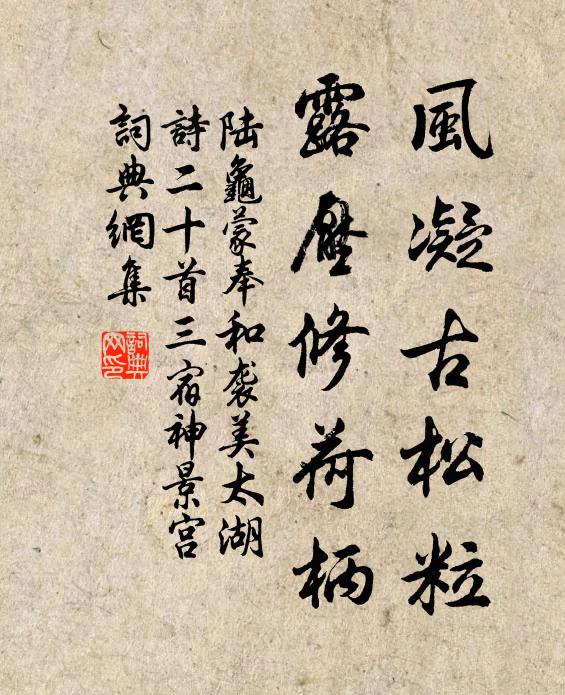 風凝古松粒
露壓修荷柄
陆龜蒙奉和袭美太湖
詩二十首三宿神景宫
詞典網集
詞典
网印